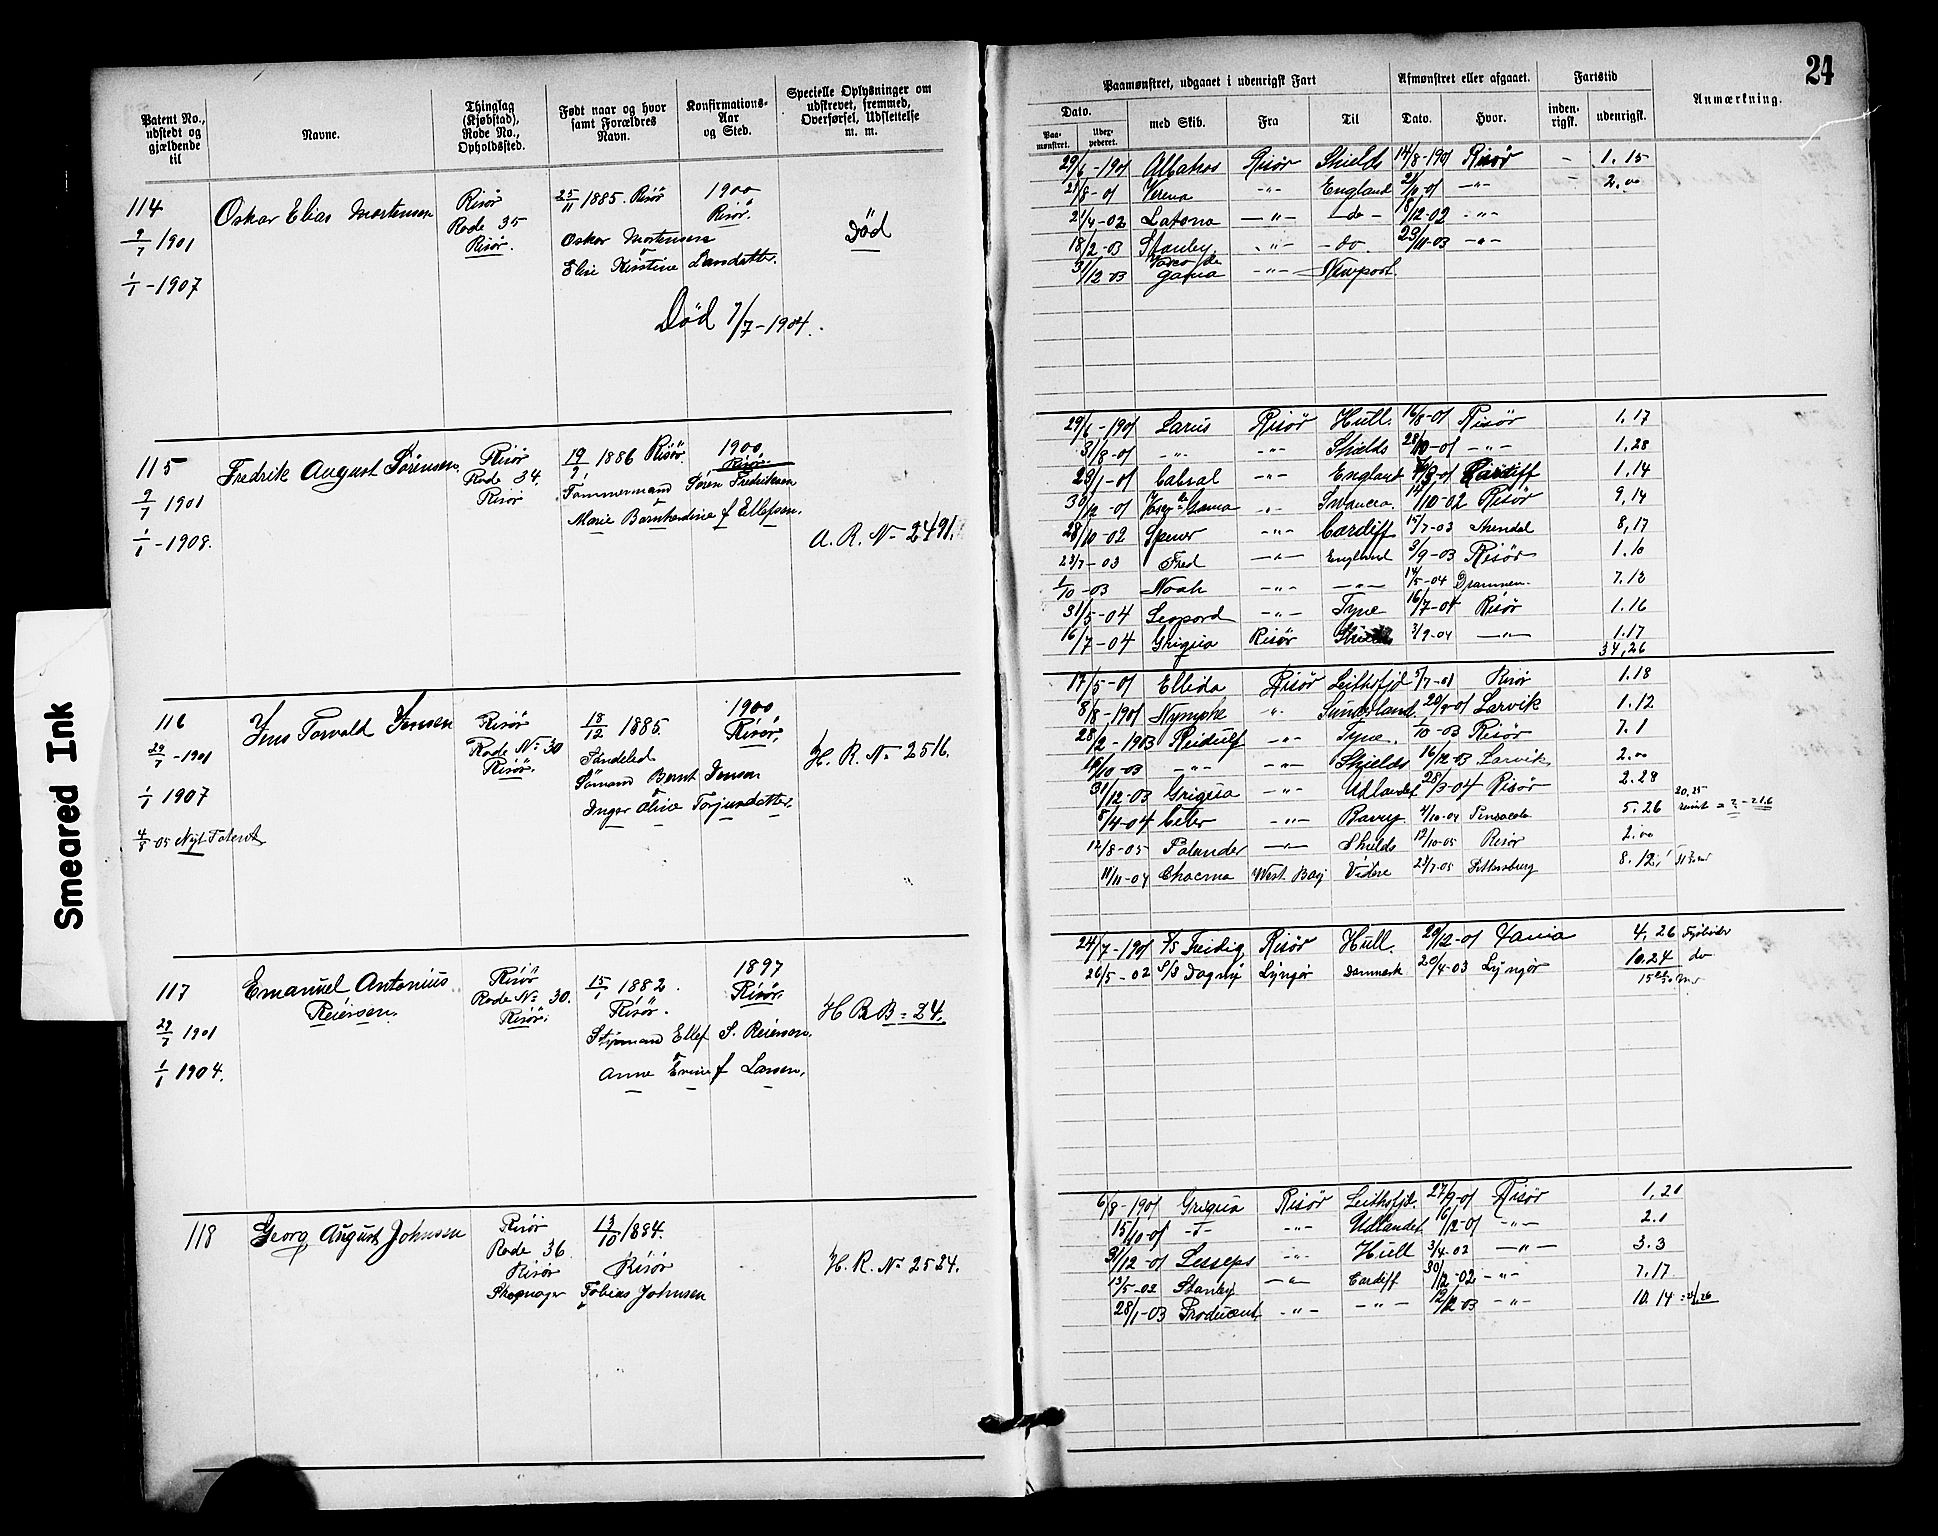 24
Patent No., udstedt og gjældende til
Navne.
Thinglag (Kjøbstad), Rode No., Opholdssted.
Født naar og hvor samt Forældres Navn.
Konfirmations-Aar og Sted.
Specielle Oplysninger om udskrevet, fremmed, Overførsel, Udslettelse m. m.
Paamønstret, udgaaet i udenrigsk Fart
Afmønstret eller afgaaet.
Fartstid
Anmærkning.
Dato.
Paa-mønstret.
med Skib.
Fra
Til
Dato.
Hvor.
inden-rigsk.
udenrigsk.
114
9/7 1901
1/1 - 1907
Oskar Elias Mortensen
Risör
Rode 35
Risör.
25/11 1885. Risör
Oskar Mortensen
Elise Kirstine
1900
Risör.
Död
Död 7/7 - 1904.
29/6 - 1901 Albatros Risör Shields 14/8 - 1901 Risör - 1. 15
21/8 - 01 Verena -"- England -"- - 2.00
21/4 - 02 Latona -"- - do - 18/12 - 02 -"-
18/2 - 03 Stanley -"- - do 23/11 - 03 -"-
31/12 03 Vasco de Gama -"- Newport
115
9/7 1901
1/1 - 1908.
Fredrik August Sörensen.
Risör
Rode 34.
Risör
19/9 1886 Risör.
Tömmermand Sören Fredriksen
Marie Barnhardine f Ellefsen.
1900
Risör.
A. R. No 2491.
29/6 - 1901 Larus Risör Hull. 16/8 - 01 Risör 1. 17
31/8 - 01 -"- -"- Shields 28/10 - 01 -"- 1, 28
Cabral -"- England Cardiff 1, 14
Gama -"- Swansea. 10 - 02 Risör 9, 14
28/10 - 02 Spener -"- Cardiff 15/7 - 03 Arendal 8, 17
23/7 - 03 Fred -"- England 3/9 - 03 Risör 1. 10
1/10 - 03 Noah -"- -"- 14/5 - 04 Drammen. 7. 13
31/5 - 04 Leopard -"- Tyne 16/7 - 04 Risör 1. 16
16/7 - 04 Griqua Risör Shields 3/9 - 04 -"- 1. 17
34, 26
116
29/7 - 1901
1/1 1907
4/9 - 05 Nyt Patent
Jens Torvald Jensen
Risör
Rode No 30
Risör.
18/12 1885.
Söndeled
Sömand Bernt Jensen
Inger Oline Torjusdatter.
1900
Risör.
H. R. No 2516.
17/5 - 01 Ellida Risör Leithsfjd 5/7 - 01 Risör 1. 18
8/8 - 1901 Nymphe -"- Sunderland. 20/9 - 01 Larvik 1. 12
28/2 - 1903 Reidulf -"- Tyne. 1/10 - 03 Risör 7. 1
19/10 - 03 -"- -"- Shields 16/12 03 Larvik 2.00
31/12 03 Griqua -"- Udlandet 28/3 - 04 Risör 2. 28
8/4 - 04 Celer -"- 4/10 - 04 Pensacola 5. 26
12/8 - 05 Palander -"- Shields 12/10 - 05 Risör 2.00
11/11 - 04 Chacma West. Bay 21/7 - 05 8. 12
117
29/7 1901
1/1 1904.
Emanuel Antonius
Reiersen.
Risör
Rode No 30.
Risör.
15/1 1882.
Risör.
Styrmand Ellef S. Reiersen.
Anne f Larsen.
1897
Risör.
H R B = 24.
24/7 - 1901 S/S Freidig Risör Hull. 29/12 - 01 4, 26 Fyrböder
26/5 - 02 S/S Dagny Lyngör Danmark 20/4 - 03 Lyngör 10.24 do
118
Georg August Johnsen
Risör
Rode 36.
Risör
13/10 1884.
Risör
Tobias Johnsen
H. R. No 2524.
6/8 - 1901 Griqua Risör Leithsfjd. 27/9 - 01 Risör 1, 21
15/10 - 01 -"- -"- Udlandet 16/12 - 01 -"- 2. 1
31/12 - 01 Lesseps -"- Hull 3/4 - 02 -"- 3. 3
13/5 - 02 Stanley -"- Cardiff 30/12 - 02 -"- 7. 17
28/1 - 03 Producent -"- -"- 12/12 03 -"- 10. 14
Smeared Ink